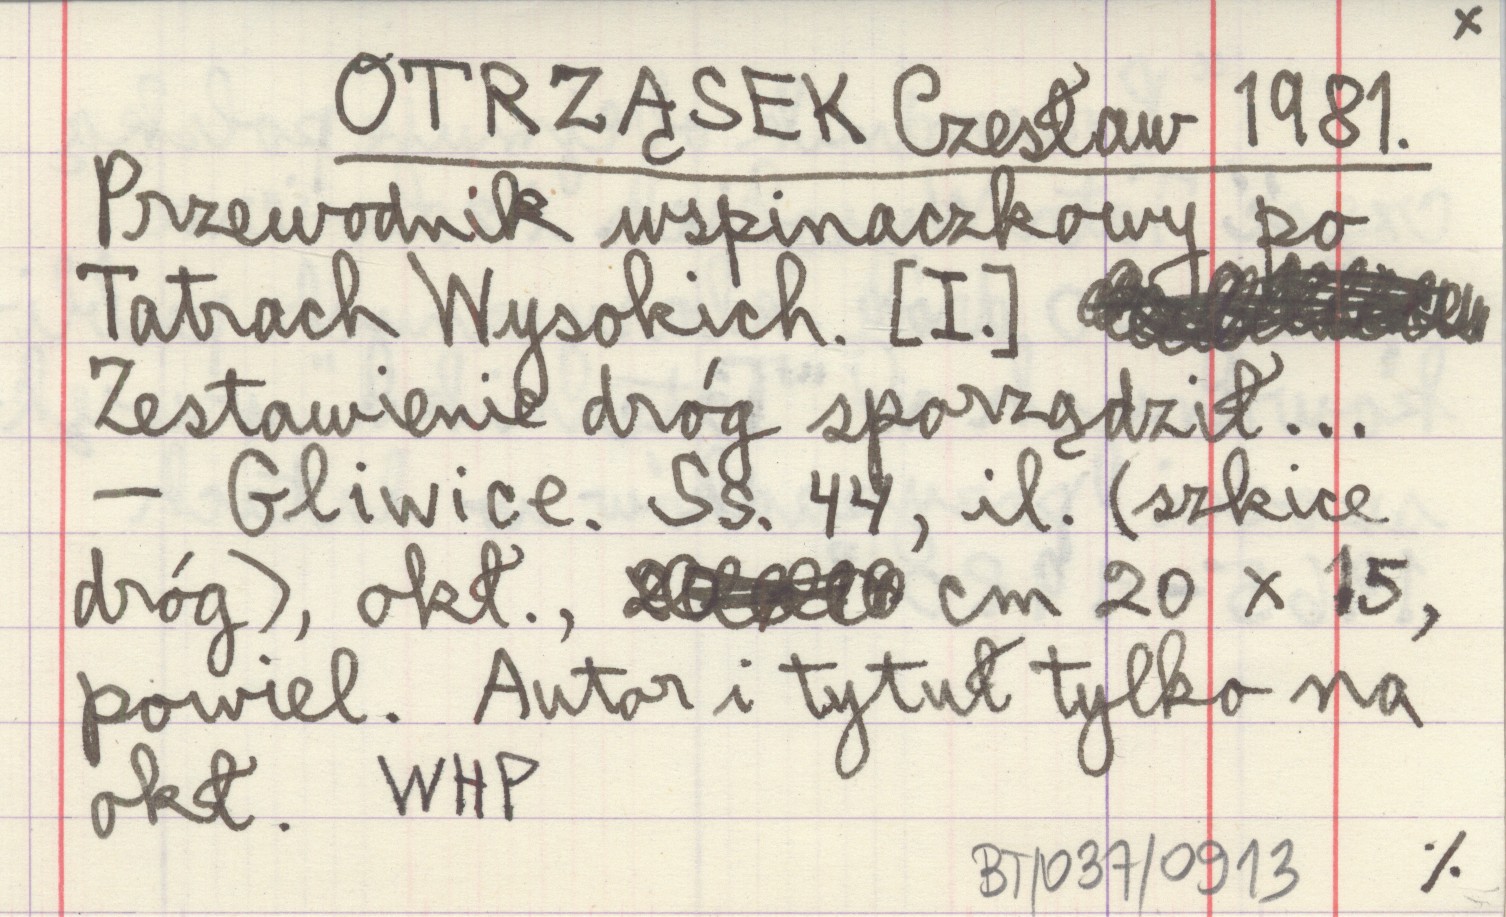 x
OTRZĄSEK Czesław 1981.
Przewodnik wspinaczkowy po
Tatrach Wysokich. [I.]
Zestawienie dróg sporządził...
— Gliwice. Ss. 44, il. (szkice
dróg), okł., cm 20 x 15,
powiel. Autor i tytuł tylko na
okł. WHP
BT/037/0913 ./.